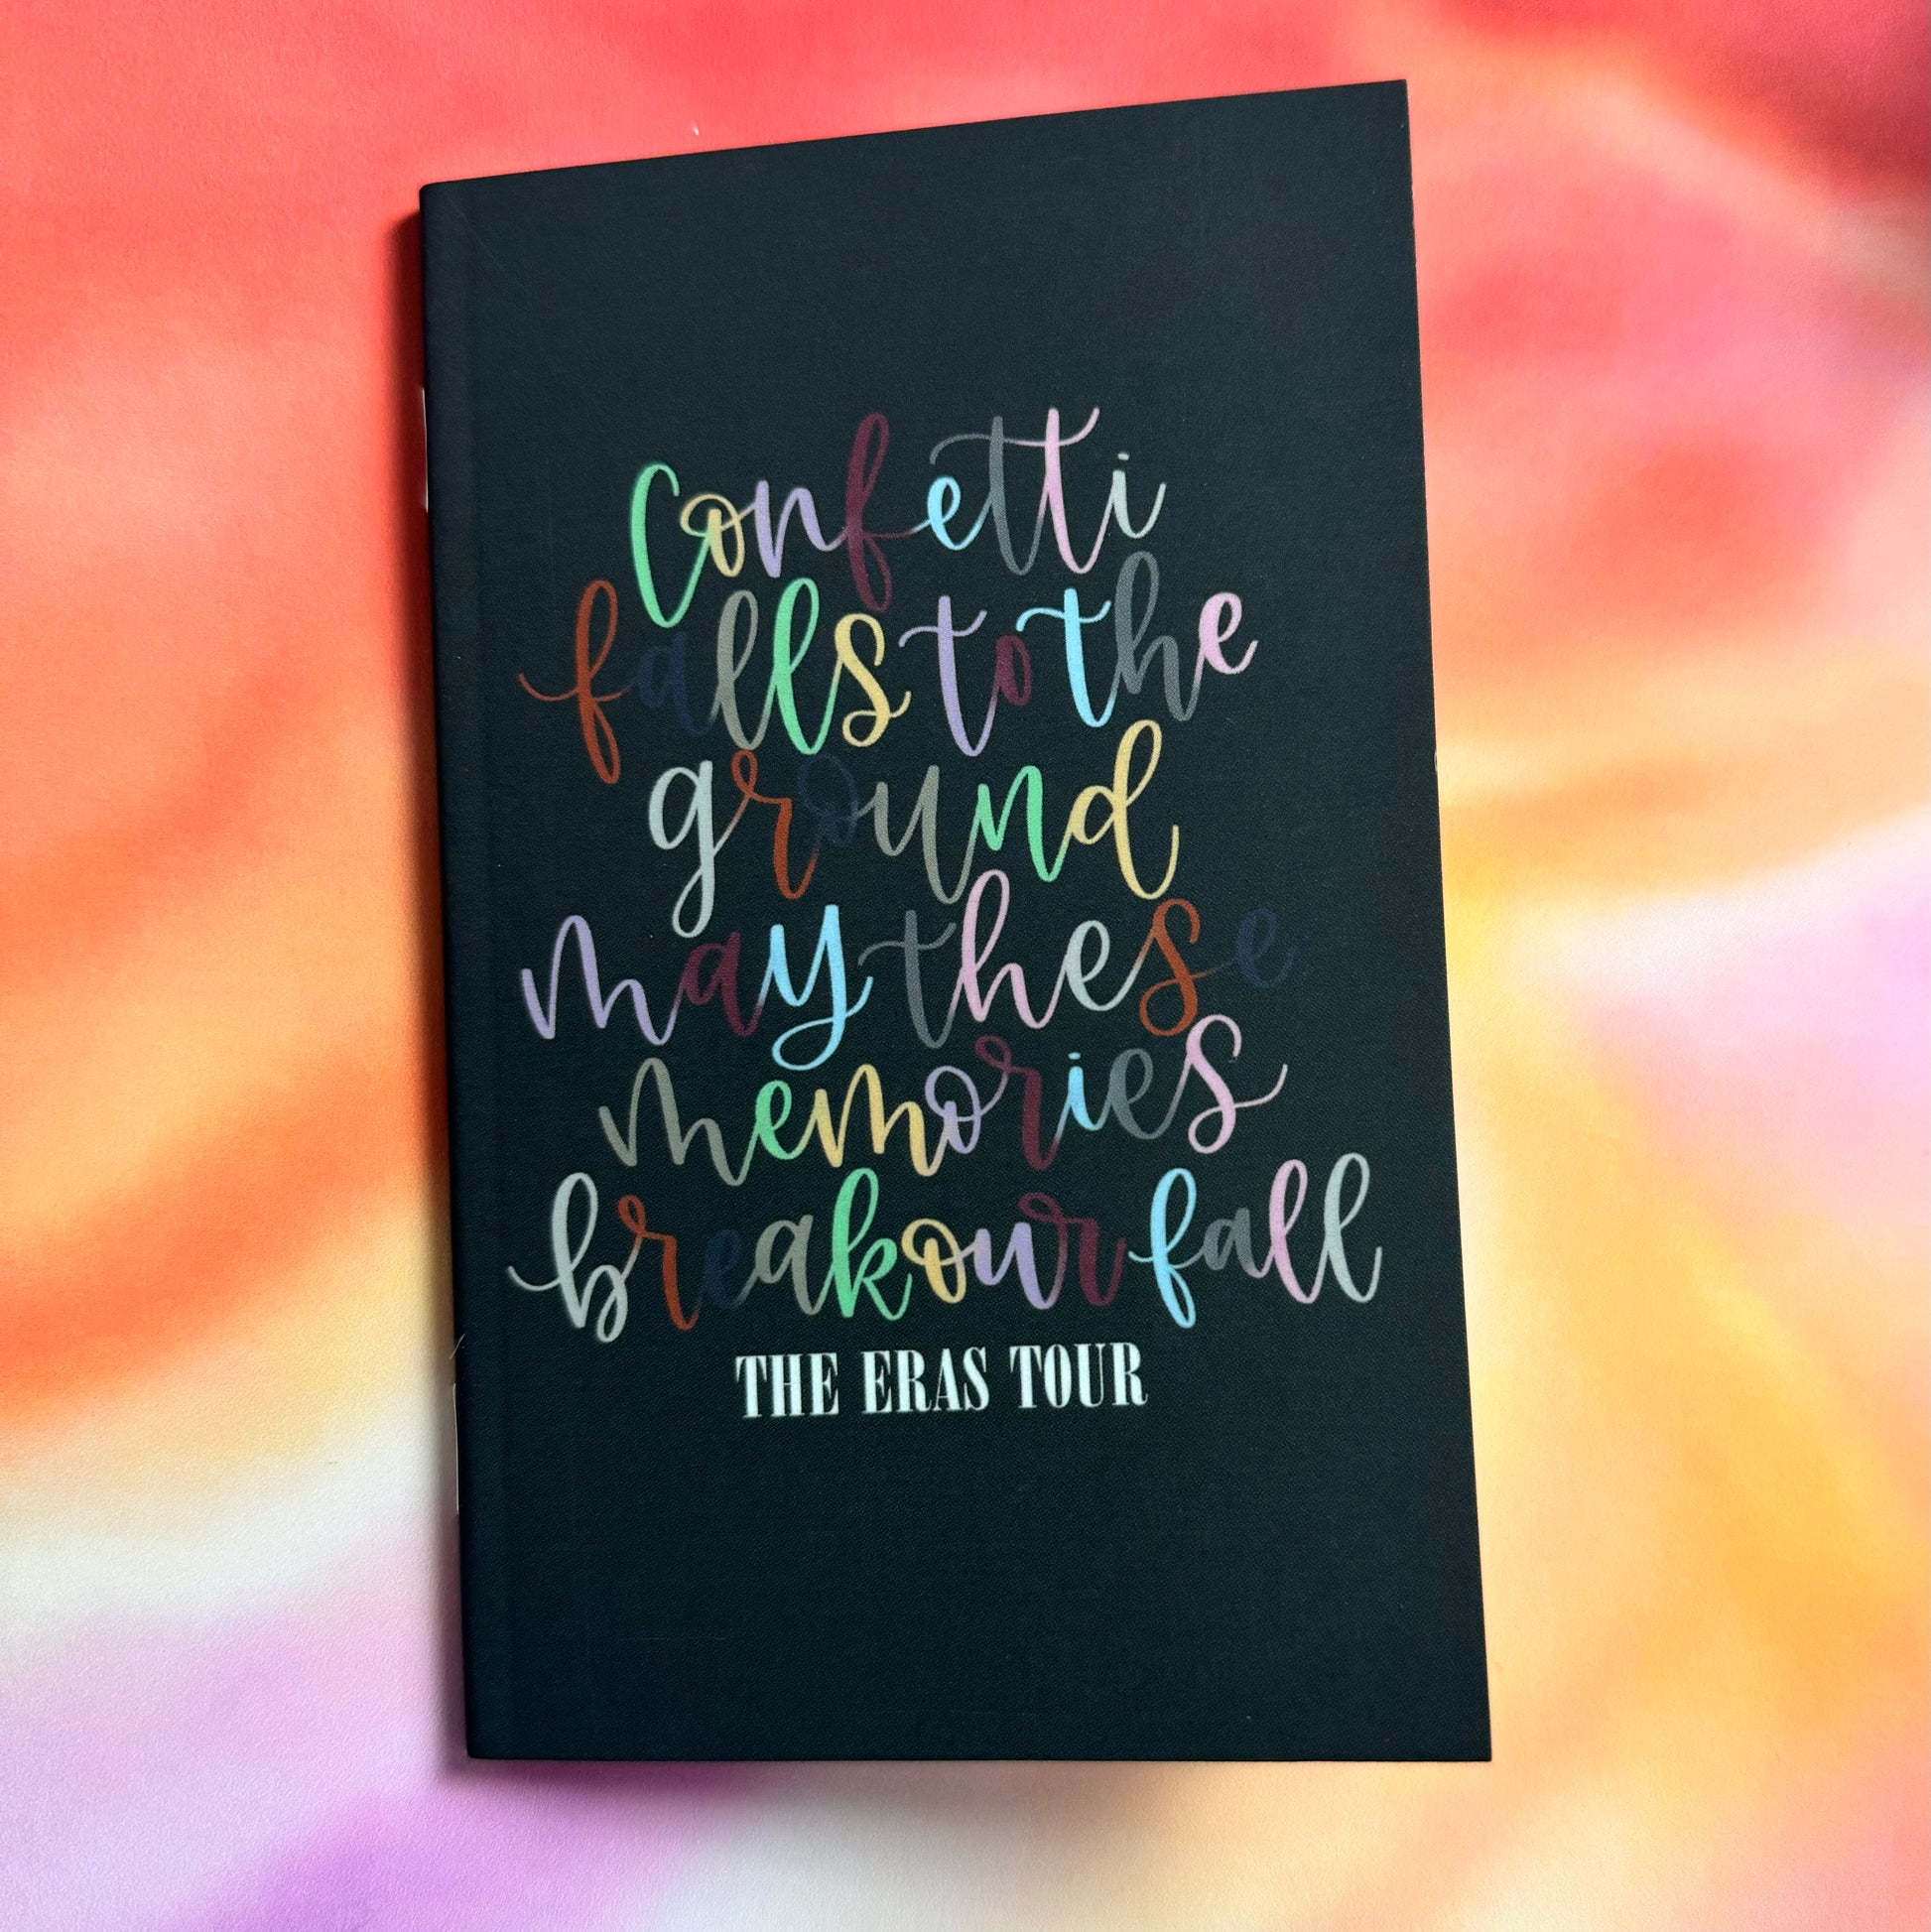 Confetti
falls to the
ground
may these
memories
break our fall
THE ERAS TOUR